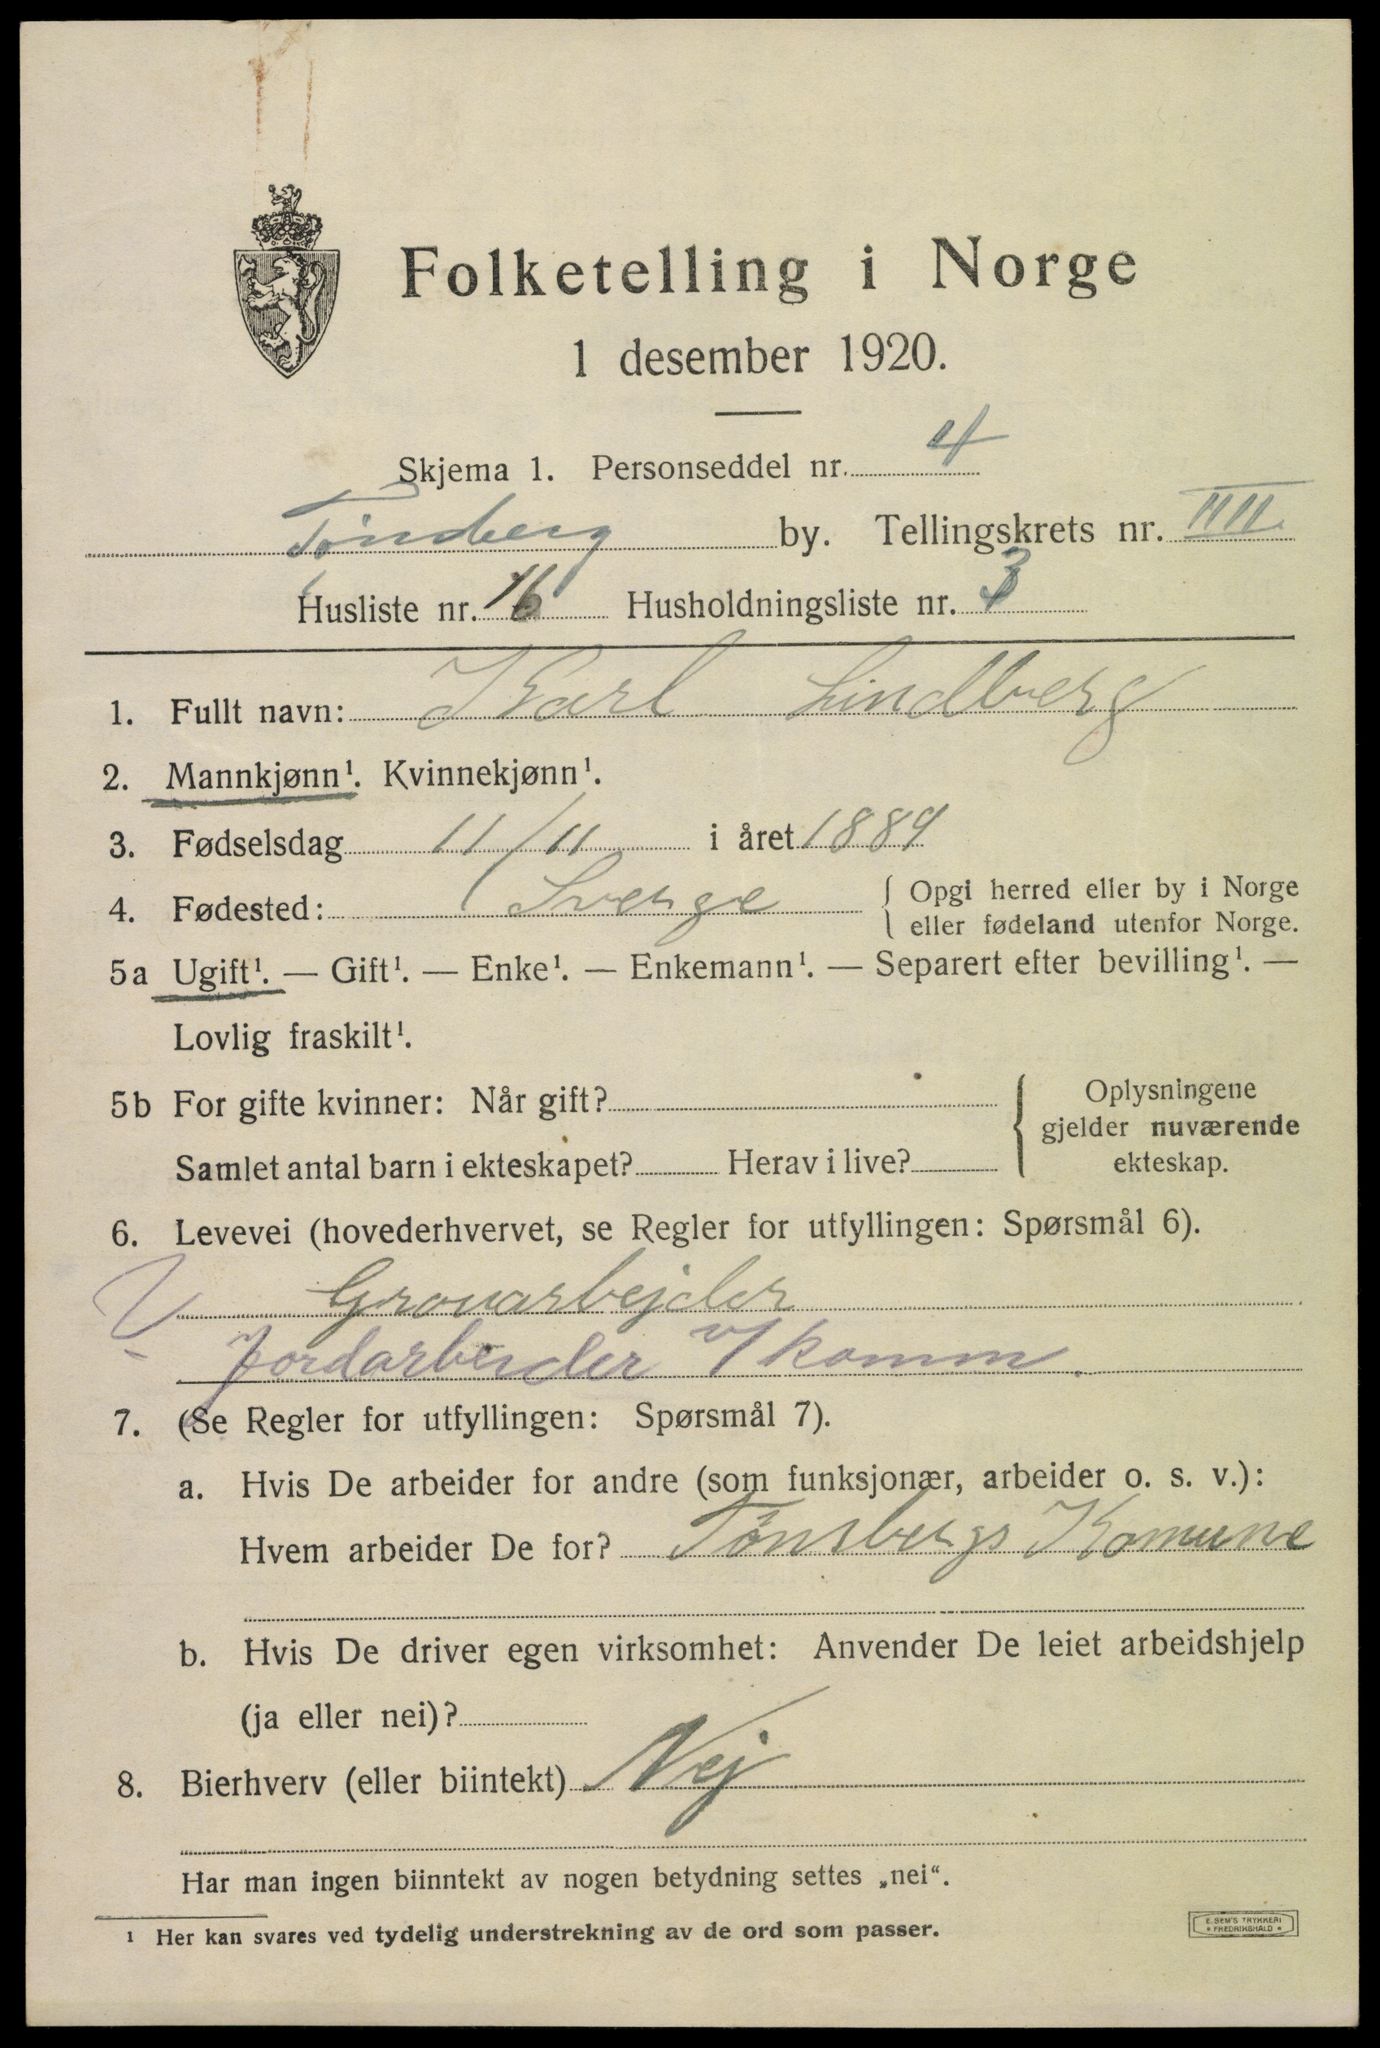 Folketelling i Norge
1 desember 1920.
Skjema 1. Personseddel nr. 4
Tønsberg by. Tellingskrets nr. IIII
Husliste nr. 16 Husholdningsliste nr. 3
1. Fullt navn: Karl Lindberg
2. Mannkjønn¹. Kvinnekjønn¹.
3. Fødselsdag 11/11 i året 1889
4. Fødested: Sverge { Opgi herred eller by i Norge
eller fødeland utenfor Norge.
5a Ugift¹. — Gift¹. — Enke¹. — Enkemann¹. — Separert efter bevilling¹. —
Lovlig fraskilt¹.
5b For gifte kvinner: Når gift?
Samlet antal barn i ekteskapet? Herav i live?
{ Oplysningene
gjelder nuværende
ekteskap.
6. Levevei (hovederhvervet, se Regler for utfyllingen: Spørsmål 6).
Grovarbejder
Jordarbeider v/komm.
7. (Se Regler for utfyllingen: Spørsmål 7).
a. Hvis De arbeider for andre (som funksjonær, arbeider o. s. v.):
Hvem arbeider De for? Tønsbergs Komune
b. Hvis De driver egen virksomhet: Anvender De leiet arbeidshjelp
(ja eller nei)?
8. Bierhverv (eller biintekt) Nej
Har man ingen biinntekt av nogen betydning settes „nei“.
¹ Her kan svares ved tydelig understrekning av de ord som passer.
E. SEM'S TRYKKERI
* FREDRIKSHALD *